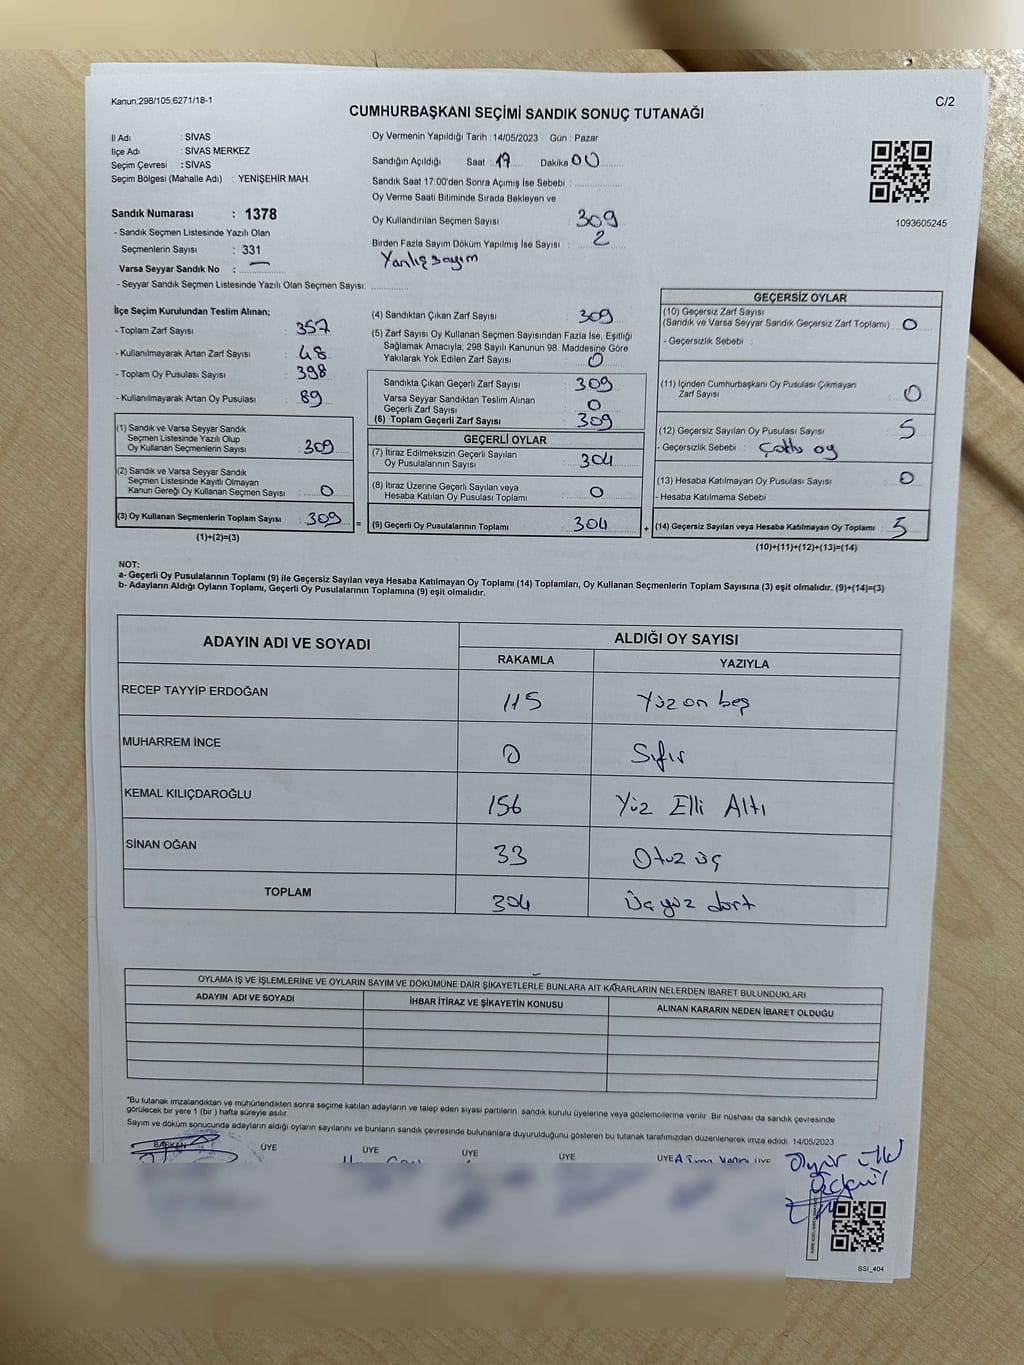 Kanun;298/105,6271/18-1
C/2
CUMHURBAŞKANI SEÇİMİ SANDIK SONUÇ TUTANAĞI
İl Adı : SİVAS
İlçe Adı : SİVAS MERKEZ
Seçim Çevresi : SİVAS
Seçim Bölgesi (Mahalle Adı) : YENİŞEHİR MAH.
Sandık Numarası : 1378
- Sandık Seçmen Listesinde Yazılı Olan
Seçmenlerin Sayısı : 331
Varsa Seyyar Sandık No : —
- Seyyar Sandık Seçmen Listesinde Yazılı Olan Seçmen Sayısı:
Oy Vermenin Yapıldığı Tarih : 14/05/2023 Gün : Pazar
Sandığın Açıldığı Saat : 17 Dakika 00
Sandık Saat 17:00'den Sonra Açımış İse Sebebi :
Oy Verme Saati Bitiminde Sırada Bekleyen ve
Oy Kullandırılan Seçmen Sayısı : 309
Birden Fazla Sayım Döküm Yapılmış İse Sayısı : 2
Yanlış sayım
1093605245
İlçe Seçim Kurulundan Teslim Alınan;
- Toplam Zarf Sayısı : 357
- Kullanılmayarak Artan Zarf Sayısı : 48
- Toplam Oy Pusulası Sayısı : 398
- Kullanılmayarak Artan Oy Pusulası : 89
(1) Sandık ve Varsa Seyyar Sandık
Seçmen Listesinde Yazılı Olup
Oy Kullanan Seçmenlerin Sayısı : 309
(2) Sandık ve Varsa Seyyar Sandık
Seçmen Listesinde Kayıtlı Olmayan
Kanun Gereği Oy Kullanan Seçmen Sayısı : 0
(3) Oy Kullanan Seçmenlerin Toplam Sayısı : 309 =
(1)+(2)=(3)
(4) Sandıktan Çıkan Zarf Sayısı : 309
(5) Zarf Sayısı Oy Kullanan Seçmen Sayısından Fazla İse, Eşitliği
Sağlamak Amacıyla, 298 Sayılı Kanunun 98. Maddesine Göre
Yakılarak Yok Edilen Zarf Sayısı : 0
Sandıkta Çıkan Geçerli Zarf Sayısı : 309
Varsa Seyyar Sandıktan Teslim Alınan
Geçerli Zarf Sayısı : 0
(6) Toplam Geçerli Zarf Sayısı : 309
GEÇERLİ OYLAR
(7) İtiraz Edilmeksizin Geçerli Sayılan
Oy Pusulalarının Sayısı : 304
(8) İtiraz Üzerine Geçerli Sayılan veya
Hesaba Katılan Oy Pusulası Toplamı : 0
(9) Geçerli Oy Pusulalarının Toplamı : 304 +
GEÇERSİZ OYLAR
(10) Geçersiz Zarf Sayısı
(Sandık ve Varsa Seyyar Sandık Geçersiz Zarf Toplamı) : 0
- Geçersizlik Sebebi :
(11) İçinden Cumhurbaşkanı Oy Pusulası Çıkmayan
Zarf Sayısı : 0
(12) Geçersiz Sayılan Oy Pusulası Sayısı : 5
- Geçersizlik Sebebi : Çoklu oy
(13) Hesaba Katılmayan Oy Pusulası Sayısı : 0
- Hesaba Katılmama Sebebi :
(14) Geçersiz Sayılan veya Hesaba Katılmayan Oy Toplamı : 5
(10)+(11)+(12)+(13)=(14)
NOT:
a- Geçerli Oy Pusulalarının Toplamı (9) ile Geçersiz Sayılan veya Hesaba Katılmayan Oy Toplamı (14) Toplamları, Oy Kullanan Seçmenlerin Toplam Sayısına (3) eşit olmalıdır. (9)+(14)=(3)
b- Adayların Aldığı Oyların Toplamı, Geçerli Oy Pusulalarının Toplamına (9) eşit olmalıdır.
ADAYIN ADI VE SOYADI ALDIĞI OY SAYISI
RAKAMLA YAZIYLA
RECEP TAYYİP ERDOĞAN 115 Yüz on beş
MUHARREM İNCE 0 Sıfır
KEMAL KILIÇDAROĞLU 156 Yüz Elli Altı
SİNAN OĞAN 33 Otuz üç
TOPLAM 304 Üç yüz dört
OYLAMA İŞ VE İŞLEMLERİNE VE OYLARIN SAYIM VE DÖKÜMÜNE DAİR ŞİKAYETLERLE BUNLARA AİT KARARLARIN NELERDEN İBARET BULUNDUKLARI
ADAYIN ADI VE SOYADI İHBAR İTİRAZ VE ŞİKAYETİN KONUSU ALINAN KARARIN NEDEN İBARET OLDUĞU
*Bu tutanak imzalandıktan ve mühürlendikten sonra seçime katılan adayların ve talep eden siyasi partilerin sandık kurulu üyelerine veya gözlemcilerine verilir. Bir nüshası da sandık çevresinde
görülecek bir yere 1 (bir ) hafta süreyle asılır.
Sayım ve döküm sonucunda adayların aldığı oyların sayılarını ve bunların sandık çevresinde bulunanlara duyurulduğunu gösteren bu tutanak tarafımızdan düzenlenerek imza edildi. 14/05/2023
BAŞKAN ÜYE ÜYE ÜYE ÜYE ÜYE ÜYE
SSI_404